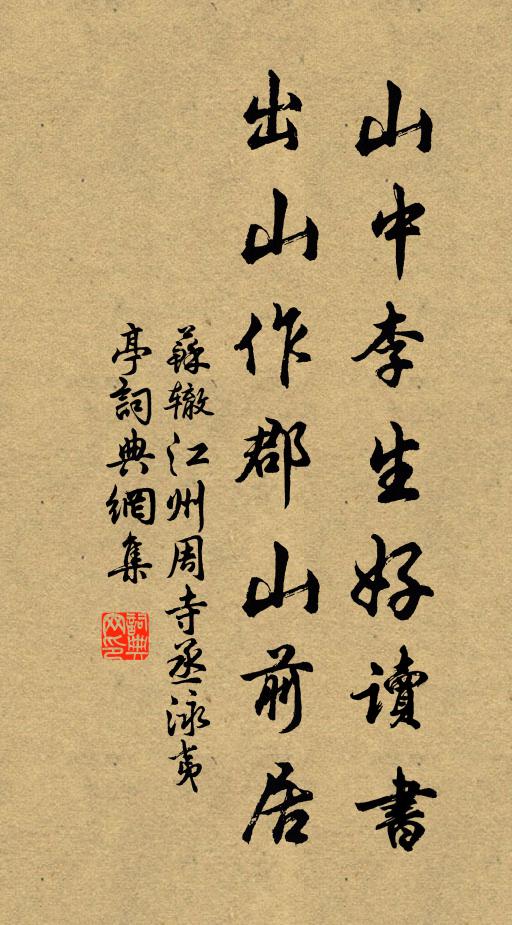 山中李生好讀書
出山作郡山前居
蘇辙江州周寺丞泳夷
亭詞典網集
詞典網印